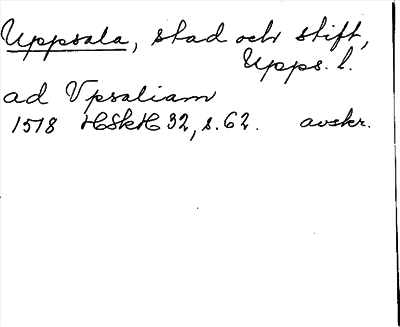 Uppsala, stad och stift,
Upps. l.
ad Vpsaliam
1518 HSkH 32, s. 62. avskr.